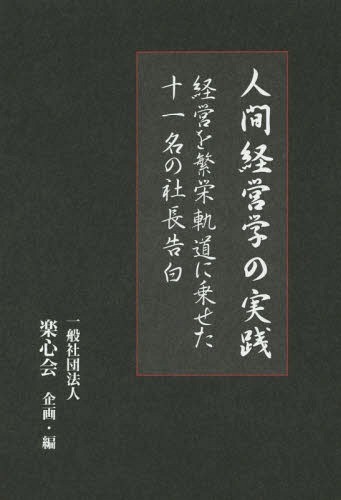 人間経営学の実践
経営を繁栄軌道に乗せた
十一名の社長告白
一般社団法人
楽心会 企画・編